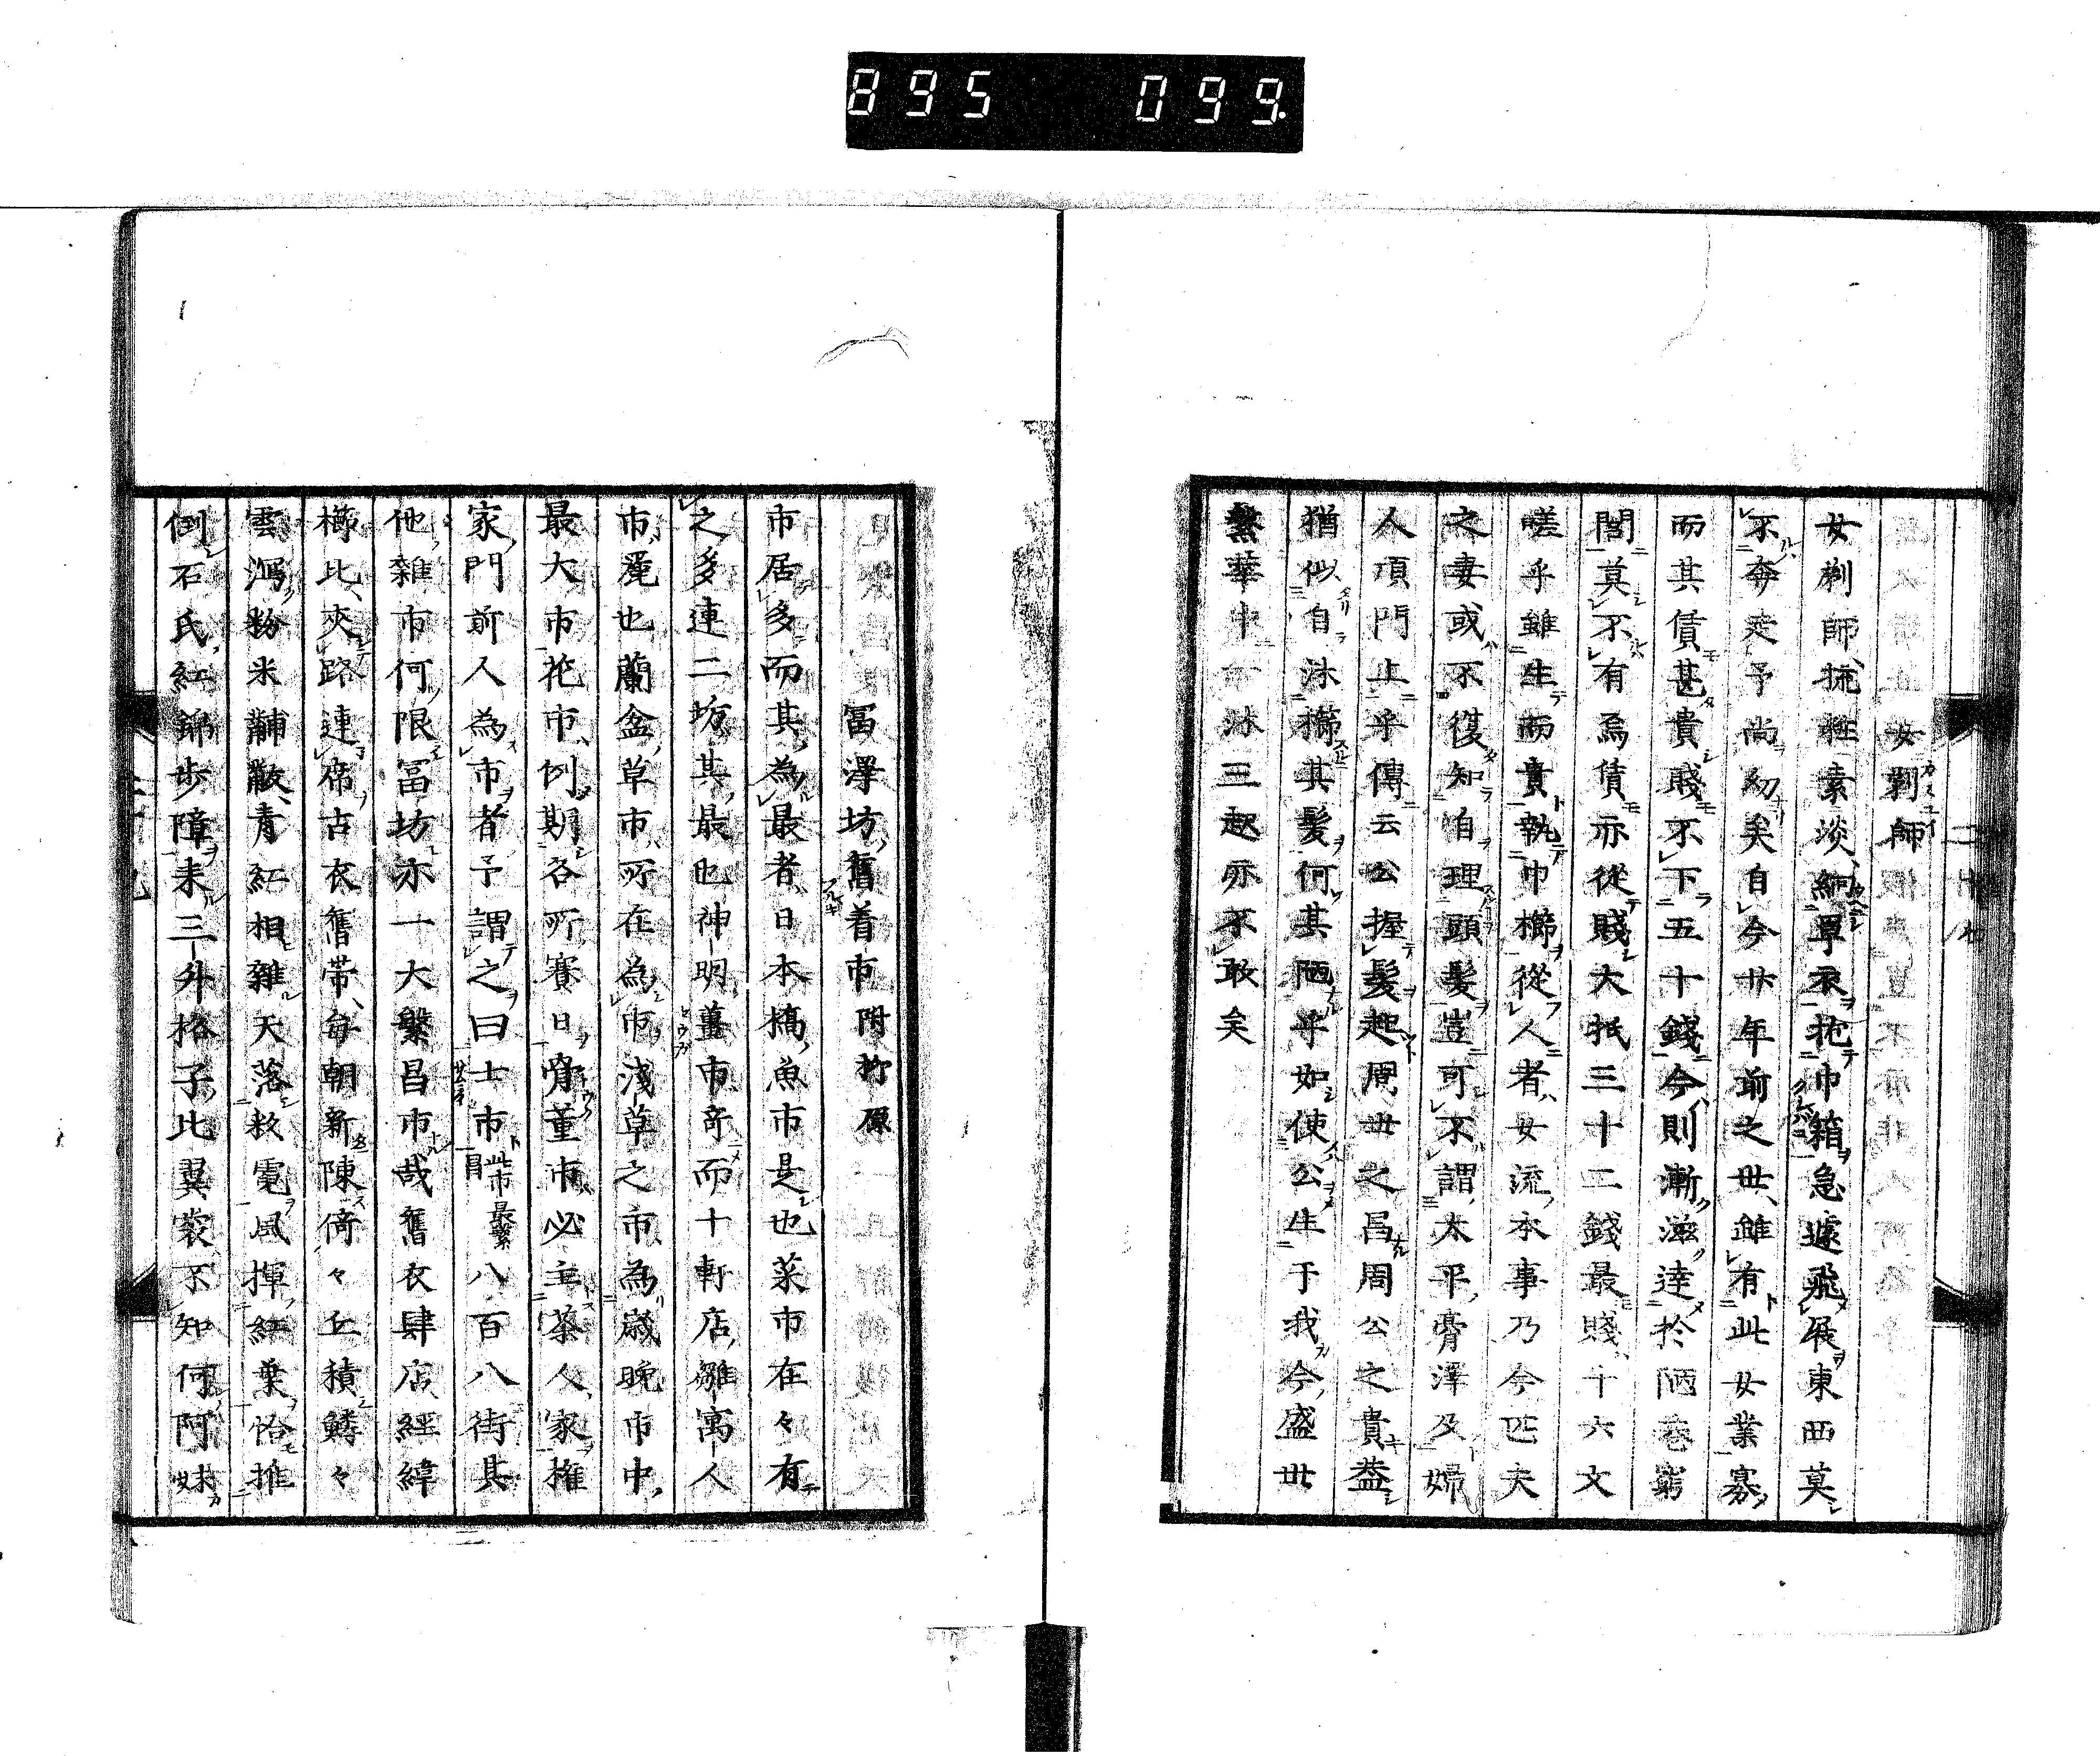 895 099
女剃師
女剃師梳粧素淡絅單衣抱巾箱急遽飛展東西莫
不奔走予尚幼矣自今廿年前之世雖有此女業寡
而其賃甚貴賤不下五十錢今則漸滋達於陋巷窮
閻莫不有焉賃亦從賤大抵三十二錢最賤十六文
嗟乎雖生而貴執巾櫛從人者女流本事乃今匹夫
之妻或不復知自理頭髮豈可不謂太平膏澤及婦
人頂門上乎傳云公握髮起周世之呂周公之貴蓋
猶似自沐櫛其髮何其陋乎如使公生于我今盛世
繁華中一沐三起亦不敢矣
冨澤坊舊着市附柳原
市居多而其為最者日本橋魚市是也菜市在々有
之多連二坊其最也神明薑市奇而十軒店雛寓人
市麗也蘭盆草市所在為市淺草之市為歲晚市中
最大市花市例期各所賽日脅董市必主茶人家權
家門前人為市者予謂之曰士市此市最繁昌八百八街其
他雜市何限冨坊亦一大繁昌市哉舊衣肆店經緯
櫛比夾路連席古衣舊帶每朝新陳倚々丘積鱗々
雲瀉粉米黼黻青紅相雜天落赦電風揮紅葉恰推
倒石氏紅錦步障来三舛格子比翼裳不知何阿妹